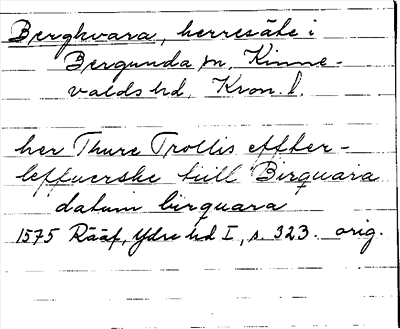 Bergkvara, herresäte i
Bergunda sn, Kinne-
valds hd, Kron. l.
her Thure Trollis effter-
leffuerske till Birquara
datum birquara
1575 Rääf, Ydre hd I, s. 323. orig.